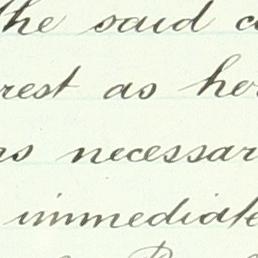 the said
rest as
necessar
immediate